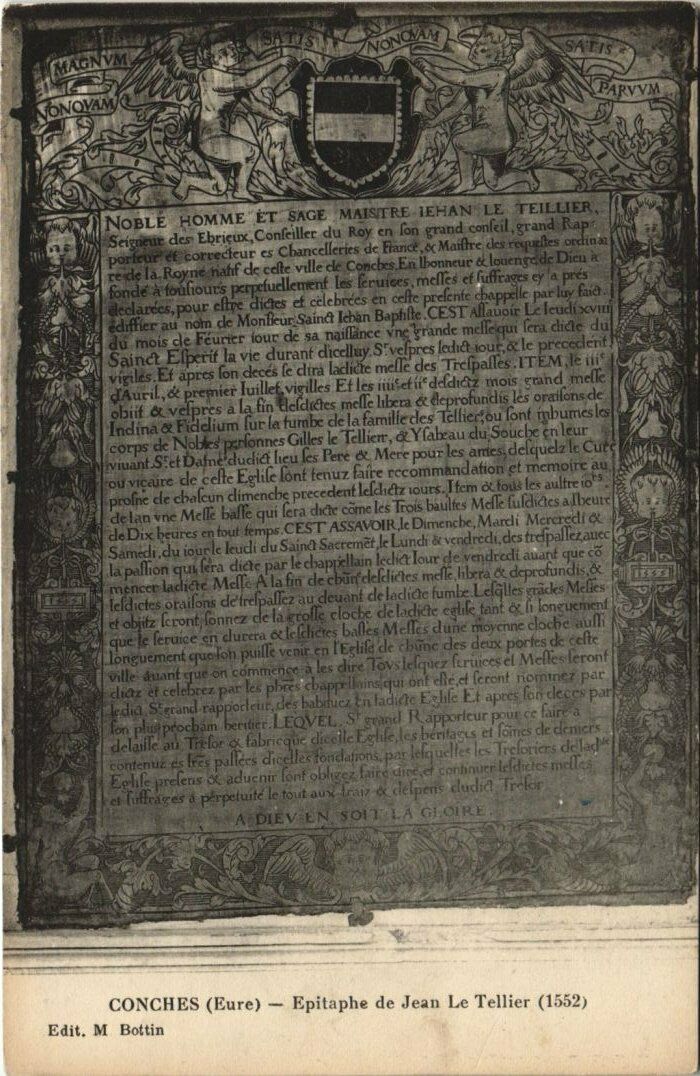 MAGNVM SATIS NONQVAM SATIS
NONQVAM PARVVM
NOBLE HOMME ET SAGE MAISTRE IEHAN LE TEILLIER,
Seigneur des Ebrieux, Conseiller du Roy en son grand conseil, grand Rap
porteur et correcteur es Chancelleries de France, & Maistre des requestes ordinai
re de la Royne natif de ceste ville de Conches. En lhonneur & louenge de Dieu a
fondé a tousiours perpetuellement les seruices, messes et suffrages cy a prés
declarées, pour estre dictes et celebrées en ceste presente chappelle par luy faict
ediffier au nom de Monsieur Sainct Iehan Baptiste. CEST Assauoir Le Ieudi xviii
du mois de Feurier iour de sa naissance vne grande messe qui sera dicte du
Sainct Esperit la vie durant dicelluy Sr. vespres ledict iour, & le precedent
vigiles. Et apres son deces se dira ladicte messe des Trespasses. ITEM, le iiie
d'Auril, & premier Iuillet, vigilles Et les iiiie et iie desdictz mois grand messe
obiit & vespres a la fin desdictes messe libera & deprofundis les oraisons de
Inclina & Fidelium sur la tumbe de la famille des Tellier, ou sont inhumes les
corps de Nobles personnes Gilles le Tellierr, & Ysabeau du Souche en leur
viuant Sr. et Dame dudict lieu ses Pere & Mere pour les ames, desquelz le Curé
ou vicaire de ceste Eglise sont tenuz faire recommandation et memoire au
prosne de chascun dimenche precedent lesdictz iours. Item & tous les aultre iors.
de lan vne Messe basse qui sera dicte côme les Trois haultes Messe susdictes a lheure
de Dix heures en tout temps. CEST ASSAVOIR, le Dimenche, Mardi Mercredi &
Samedi, du iour le Ieudi du Sainct Sacremêt, le Lundi & vendredi, des trespassez, auec
la passion qui sera dicte par le chappellain ledict Iour de vendredi auant que cô
mencer ladicte Messe A la fin de chûn desdictes messe, libera & deprofundis, &
lesdictes oraisons de trespassez au deuant de ladicte tumbe. Lesqlles grâdes Messes
et obitz seront sonnez de la grosse cloche de ladicte eglise tant & si longuement
que le seruice en durera & lesdictes basses Messes dune moyenne cloche aussi
longuement que lon puisse venir en l'Eglise de chûne des deux portes de ceste
ville auant que on commence à les dire Tovs lesquez seruices et Messes seront
dictz et celebrez par les pbres chappellains, qui ont esté, et seront nommez par
ledict Sr. grand rapporteur, des habituez en ladicte Eglise Et apres son deces par
son plus prochain heritier. LEQVEL. Sr. grand Rapporteur pour ce faire a
delaissé au Tresor & fabricque dicelle Eglise, les heritages et sômes de deniers
contenuz es lres passées dicelles fondations, par lesquelles les Tresoriers de ladte
Eglise presens & aduenir sont obligez faire dire, et continuer lesdictes messes
et suffrages à perpetuité le tout aux fraiz & despens dudict Tresor
A DIEV EN SOIT LA GLOIRE.
CONCHES (Eure) — Epitaphe de Jean Le Tellier (1552)
Edit. M Bottin